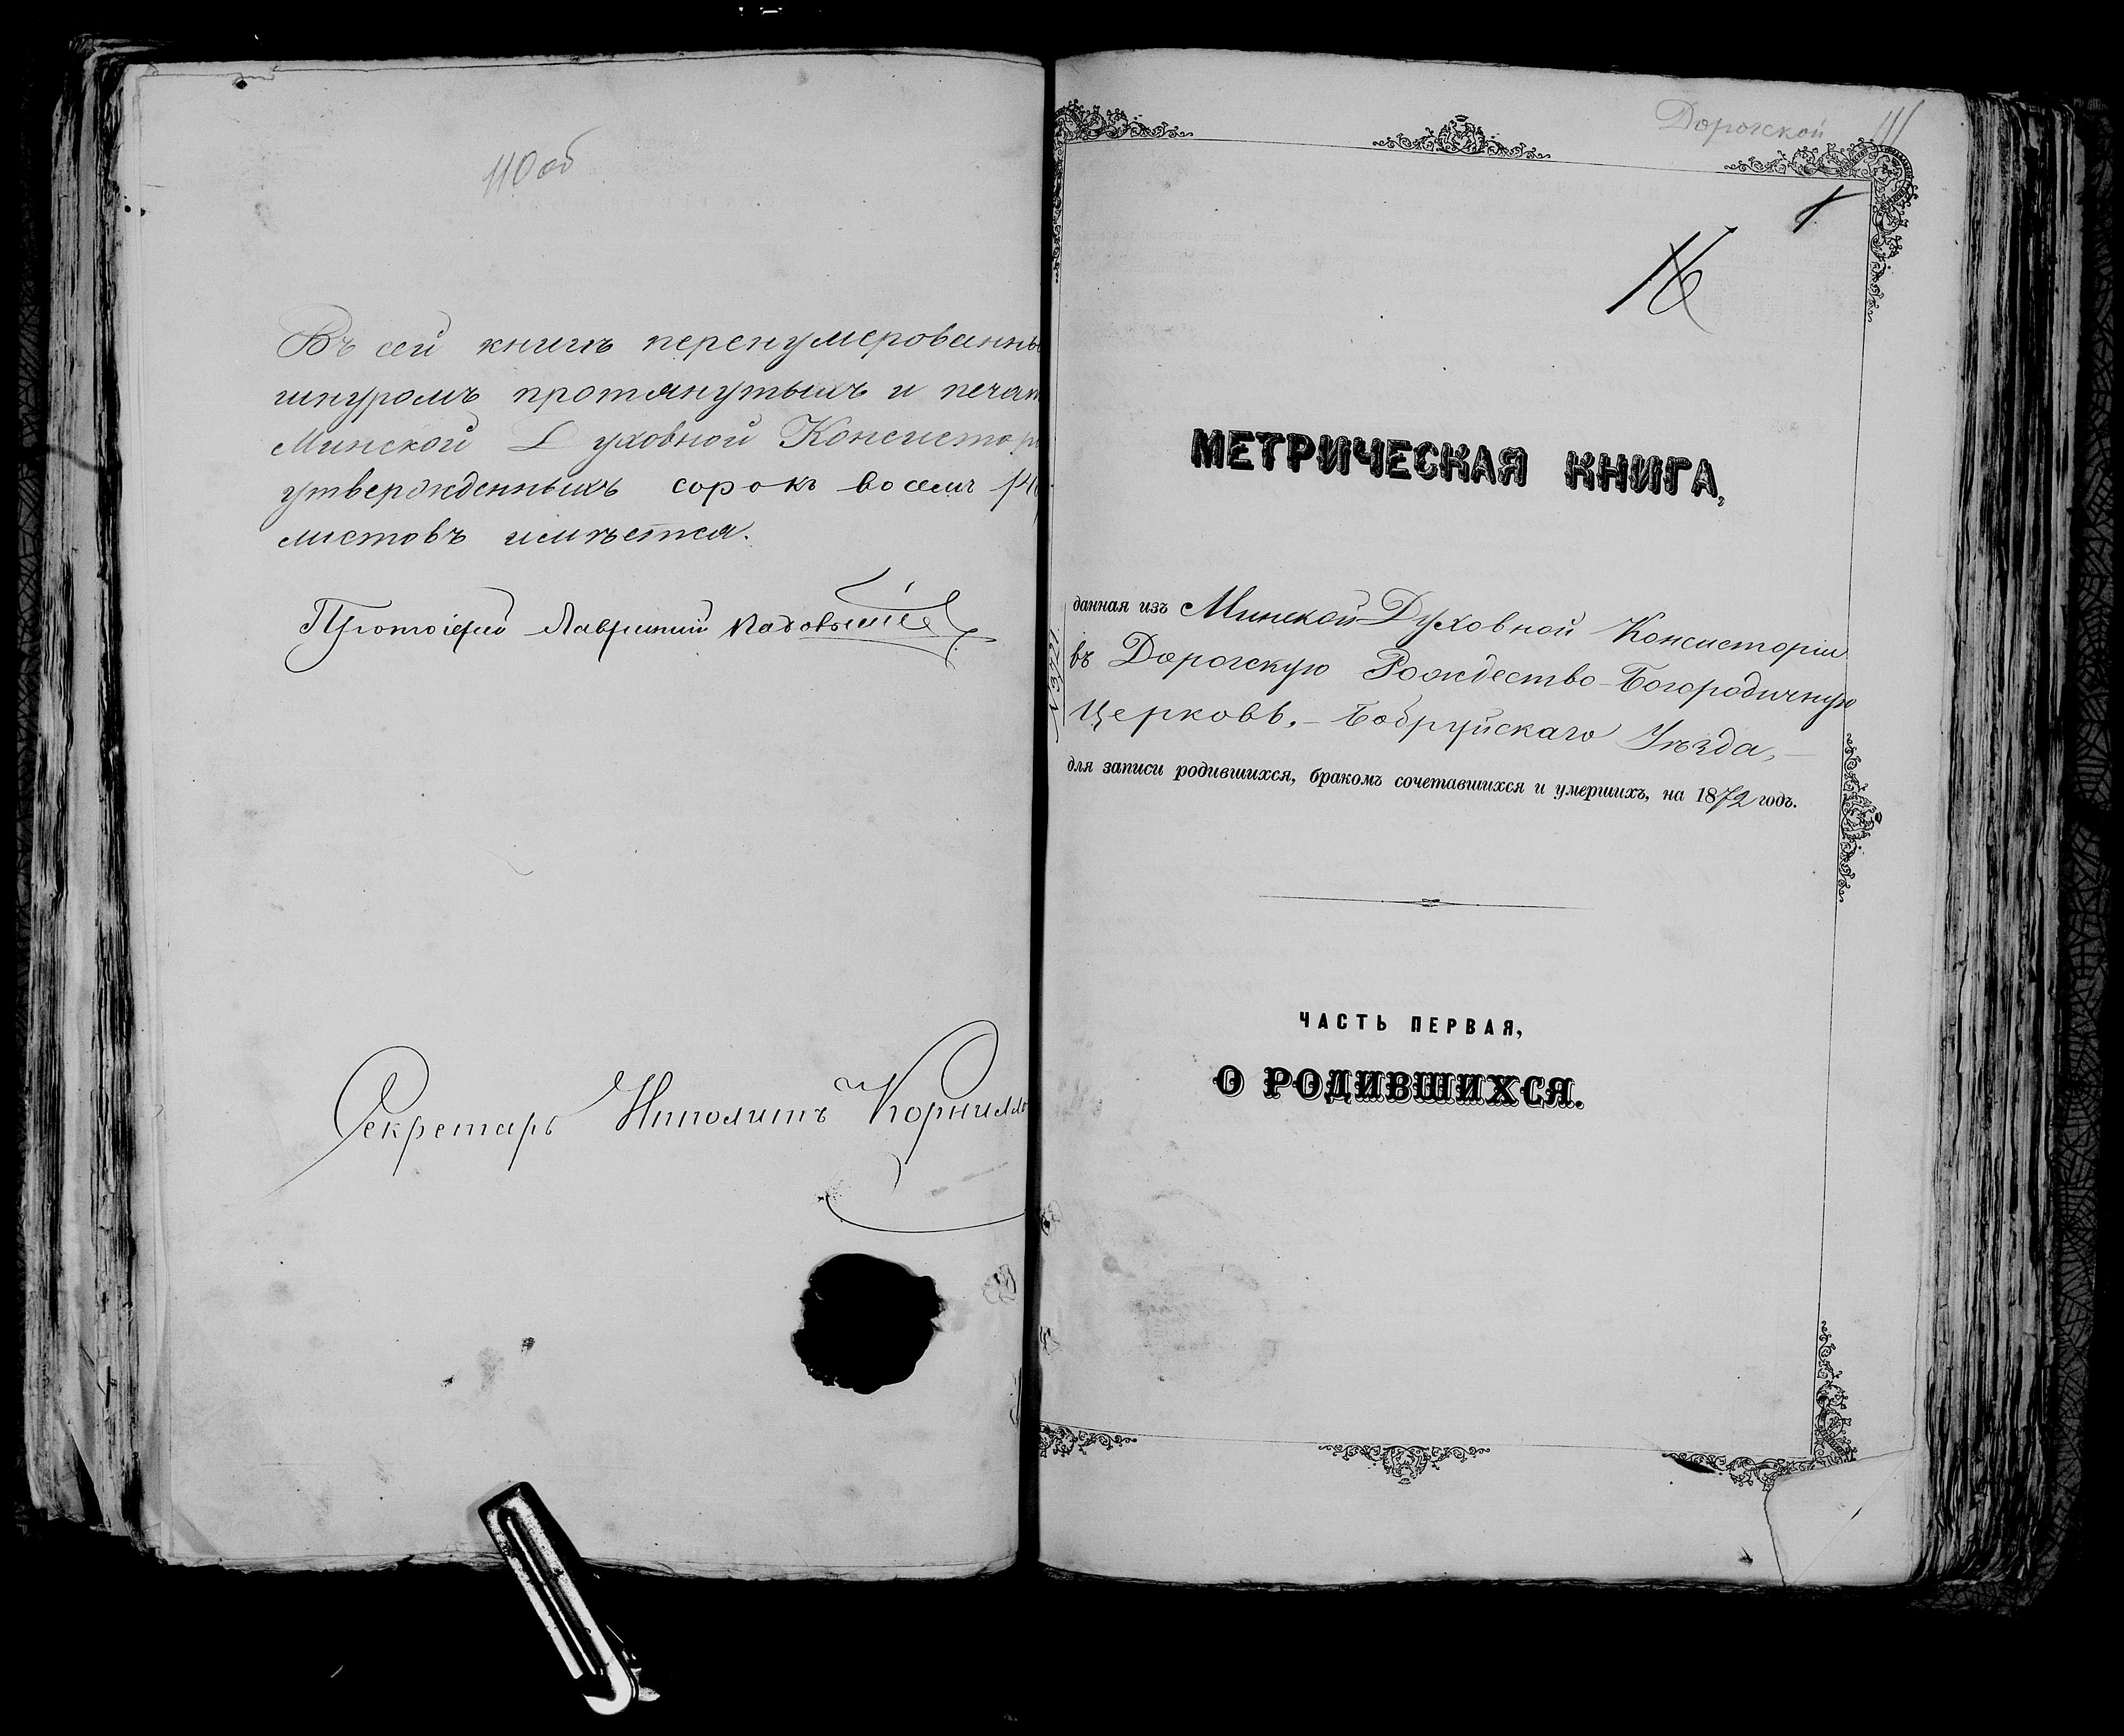 110 об
Въ сей книгѣ перенумерованны
шнуромъ протянутыхъ и печат
Минской Духовной Консистор
утвержденныхъ сорокъ восемь /4
листовъ имѣется.
Протоіерей Лаврентій
Секретарь Ипполитъ Корнилло
Дорогской 111
1
16
МЕТРИЧЕСКАЯ КНИГА,
данная изъ Минской Духовной Консисторіи
въ Дорогскую Рождество-Богородичную
Церковь, - Бобруйскаго Уѣзда, -
для записи родившихся, бракомъ сочетавшихся и умершихъ, на 1872 годъ.
№ 3721.
ЧАСТЬ ПЕРВАЯ,
О РОДИВШИХСЯ.